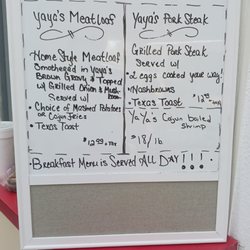 Yaya's Meatloaf
Home Style Meatloaf
Smothered in Yaya's
Brown Gravy & Topped
w/ Grilled Onion & Mush-
room
Served w/
• Choice of Mashed Potatoes
or Cajun Fries
• Texas Toast
$12.99
Yaya's Pork Steak
Grilled Pork Steak
Served w/
• 2 eggs cooked your way!
• Hashbrowns
• Texas Toast $12.99
YaYa's Cajun boiled
Shrimp
$18/lb.
• Breakfast Menu is Served ALL DAY!!!